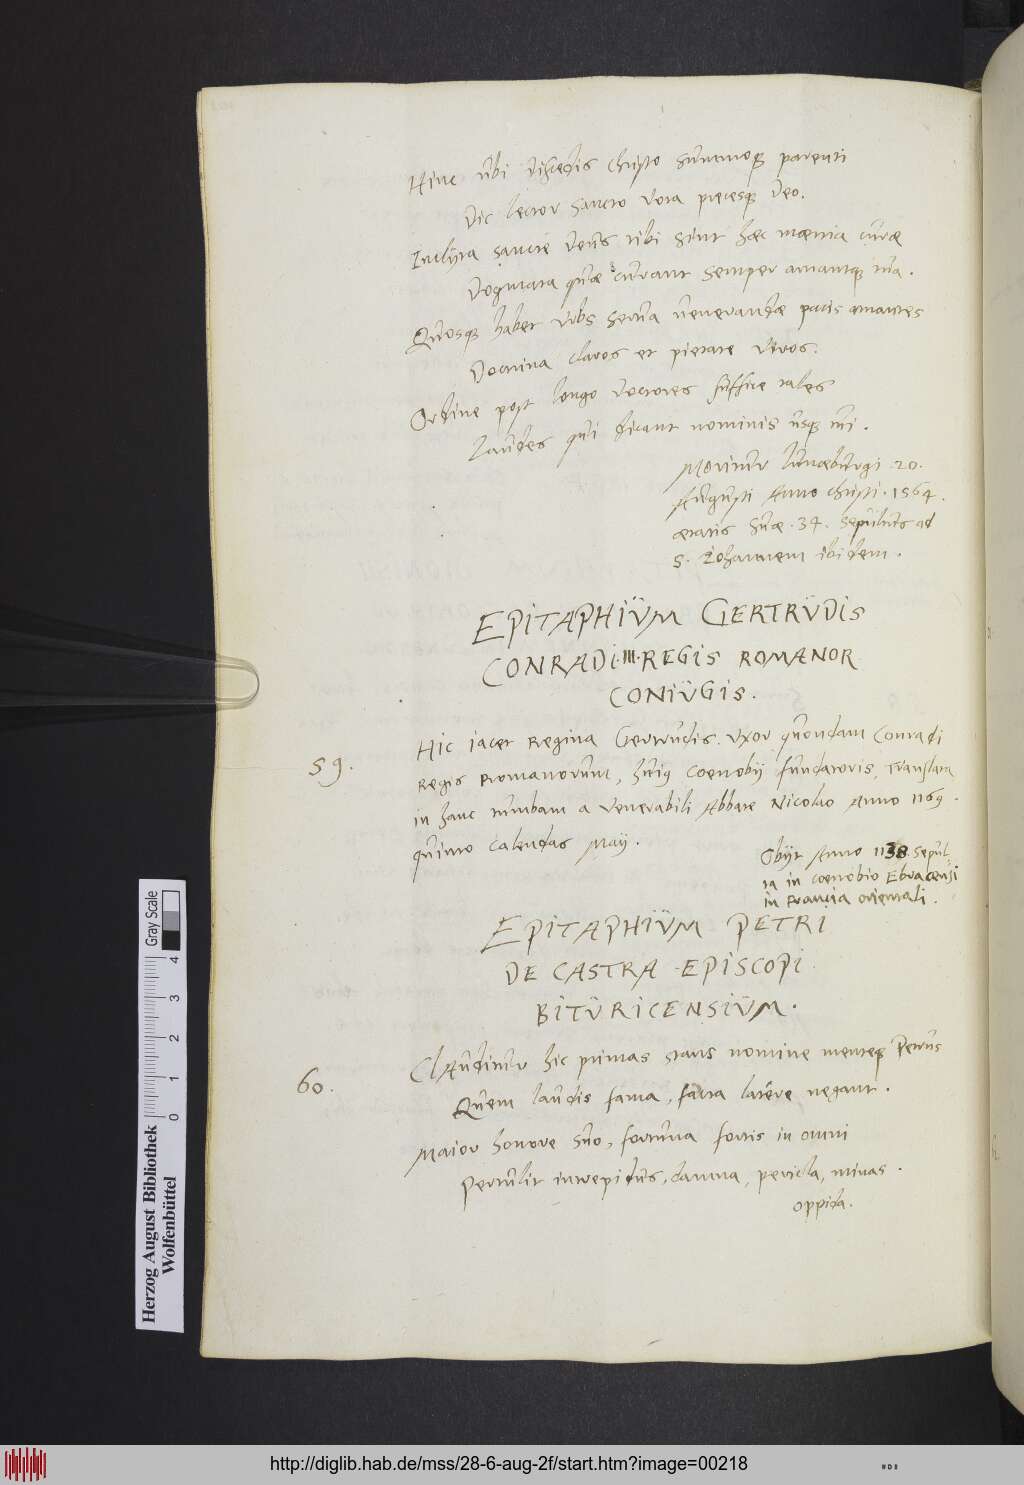 Hinc ubi discedis Christo summoq; parenti
Dic lector sancto vota precesq; Deo.
Inclyta sancte Deus tibi sint haec moenia curae
Dogmata quae curant semper amantq; tua.
Quosq; habet urbs servа venerandae pacis amantes
Doctrina claros et pietate viros.
Ordine post longo doctores suffice tales
Laudes qui dicant nominis usq; tui.
Moritur Lunaeburgi .20.
Augusti Anno Christi .1564.
aetatis suae .34. sepultus ad
S. Iohannem ibidem.
EPITAPHIUM GERTRUDIS
CONRADI .III. REGIS ROMANOR
CONIUGIS.
59.
Hic iacet Regina Gertrudis. uxor quondam Conradi
Regis Romanorum, huiq coenobij fundatoris, Translata
in hanc tumbam a venerabili Abbate Nicolao Anno 1169.
quinto Calendas Maij.
Obijt Anno 1138. sepul
ta in coenobio Ebracensi
in Francia orientali.
EPITAPHIUM PETRI
DE CASTRA EPISCOPI
BITURICENSIUM.
60.
Clauditur hic primas stans nomine menteq; Petrus
Quem laudis fama, facta latere negant.
Maior honore suo, fortuna fortis in omni
Pertulit intrepidus, damna, pericla, minas.
oppida.
Herzog August Bibliothek
Wolfenbüttel
Gray Scale
0 1 2 3 4
http://diglib.hab.de/mss/28-6-aug-2f/start.htm?image=00218